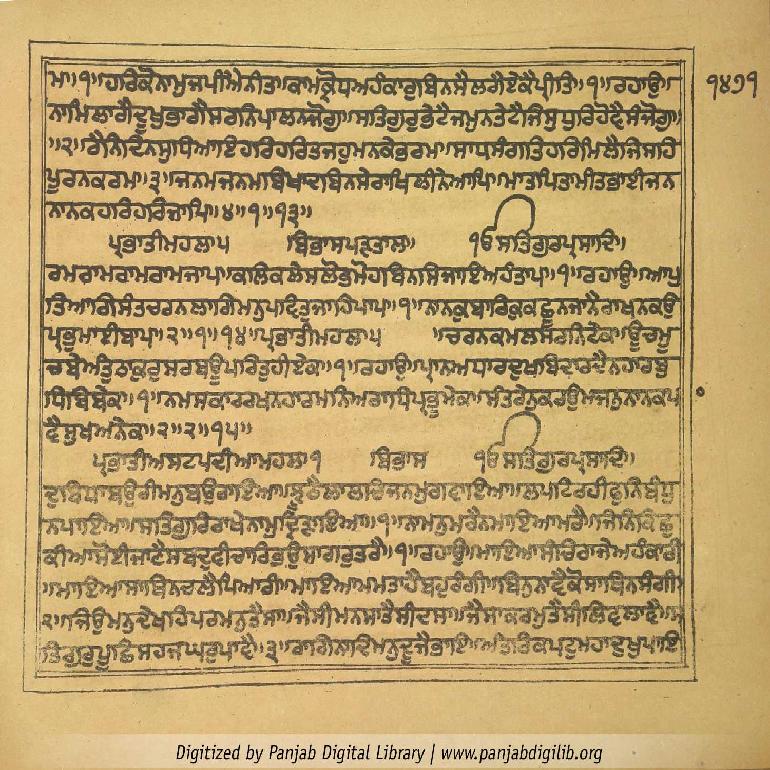 ਮਾ॥੧॥ਹਰਿਕੋਨਾਮੁਜਪੀਐਨੀਤਾਕਾਮਕ੍ਰੋਧਅਹੰਕਾਰੁਬਿਨਸੈਲਗੈਏਕੈਪ੍ਰੀਤਿ॥੧॥ਰਹਾਉ॥
ਨਾਮਿਲਾਗੈਦੂਖੁਭਾਗੈਸਰਨਿਪਾਲਨਜੋਗੁ॥ਸਤਿਗੁਰੁਭੇਟੈਜਮੁਨਤੇਟੈਜਿਸੁਧੁਰਿਹੋਵੈਸੰਜੋਗੁ॥
॥੨॥ਰੈਨਿਦਿਨਸੁਧਿਆਇਹਰਿਹਰਿਤਜਹੁਮਨਕੇਭਰਮਾ॥ਸਾਧਸੰਗਤਿਹਰਿਮਿਲੈਜਿਸਹਿ
ਪੂਰਨਕਰਮਾ॥੩॥ਜਨਮਜਨਮਬਿਖਾਦਬਿਨਸੇਰਾਖਿਲੀਨੇਆਪਿ॥ਮਾਤਪਿਤਾਮੀਤਭਾਈਜਨ
ਨਾਨਕਹਰਿਹਰਿਜਾਪਿ॥੪॥੧॥੧੩॥
ਪ੍ਰਭਾਤੀਮਹਲਾ੫ ਬਿਭਾਸਪੜਤਾਲ॥ ੴਸਤਿਗੁਰਪ੍ਰਸਾਦਿ॥
ਰਮਰਾਮਰਾਮਰਾਮਜਾਪ॥ਕਲਿਕਲੇਸਲੋਭਮੋਹਬਿਨਸਿਜਾਇਅਹੰਤਾਪ॥੧॥ਰਹਾਉ॥ਆਪੁ
ਤਿਆਗਿਸੰਤਚਰਨਲਾਗਿਮਨੁਪਵਿਤੁਜਾਹਿਪਾਪ॥੧॥ਨਾਨਕੁਬਾਰਿਕੁਕਛੂਨਜਾਨੈਰਾਖਨਕਉ
ਪ੍ਰਭੁਮਾਈਬਾਪ॥੨॥੧॥੧੪॥ਪ੍ਰਭਾਤੀਮਹਲਾ੫ ॥ਚਰਨਕਮਲਸਰਨਿਟੇਕ॥ਊਚਮੂ
ਚਬੇਅੰਤੁਠਾਕੁਰੁਸਰਬਊਪਰਿਤੁਹੀਏਕ॥੧॥ਰਹਾਉ॥ਪ੍ਰਾਨਅਧਾਰਦੁਖਬਿਦਾਰਦੈਨਹਾਰਬੁ
ਧਿਬਿਬੇਕ॥੧॥ਨਮਸਕਾਰਰਖਨਹਾਰਮਨਿਅਰਾਧਿਪ੍ਰਭੂਮੇਕ॥ਸੰਤਰੇਨੁਕਰਉਮਜਨੁਨਾਨਕਪਾ
ਵੈਸੁਖਅਨੇਕ॥੨॥੨॥੧੫॥
ਪ੍ਰਭਾਤੀਅਸਟਪਦੀਆਮਹਲਾ੧ ਬਿਭਾਸ ੴਸਤਿਗੁਰਪ੍ਰਸਾਦਿ॥
ਦੁਬਿਧਾਬਉਰੀਮਨੁਬਉਰਾਇਆ॥ਝੂਠੈਲਾਲਚਿਜਨਮੁਗਵਾਇਆ॥ਲਪਟਿਰਹੀਫੁਨਿਬੰਧੁ
ਨਪਾਇਆ॥ਸਤਿਗੁਰਿਰਾਖੇਨਾਮੁਦ੍ਰਿੜਾਇਆ॥੧॥ਨਾਮਨੁਮਰੈਨਮਾਇਆਮਰੈ॥ਜਿਨਿਕਿਛੁ
ਕੀਆਸੋਈਜਾਣੈਸਬਦੁਵੀਚਾਰਿਭਉਸਾਗਰੁਤਰੈ॥੧॥ਰਹਾਉ॥ਮਾਇਆਸੰਚਿਰਾਜੇਅਹੰਕਾਰੀ
॥ਮਾਇਆਸਾਥਿਨਚਲੈਪਿਆਰੀ॥ਮਾਇਆਮਮਤਾਹੈਬਹੁਰੰਗੀ॥ਬਿਨੁਨਾਵੈਕੋਸਾਥਿਨਸੰਗੀ॥
੨॥ਜਿਉਮਨੁਦੇਖਹਿਪਰਮਨੁਤੈਸਾ॥ਜੈਸੀਮਨਸਾਤੈਸੀਦਸਾ॥ਜੈਸਾਕਰਮੁਤੈਸੀਲਿਵਲਾਵੈ॥ਸ
ਤਿਗੁਰੁਪੂਛਿਸਹਜਘਰੁਪਾਵੈ॥੩॥ਰਾਗਿਨਾਦਿਮਨੁਦੂਜੈਭਾਇ॥ਅੰਤਰਿਕਪਟੁਮਹਾਦੁਖੁਪਾਇ
੧੪੭੧
Digitized by Panjab Digital Library | www.panjabdigilib.org